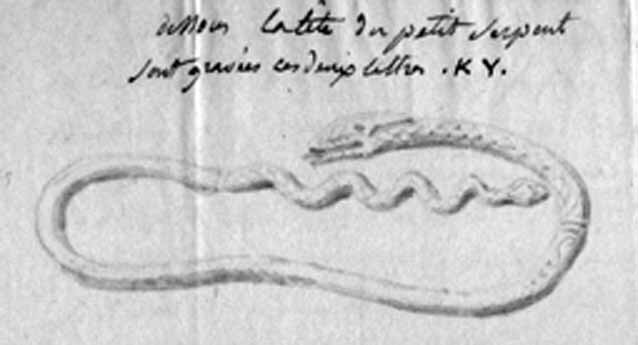 dessous la tête du petit serpent
sont gravées ces deux lettres . K Y.